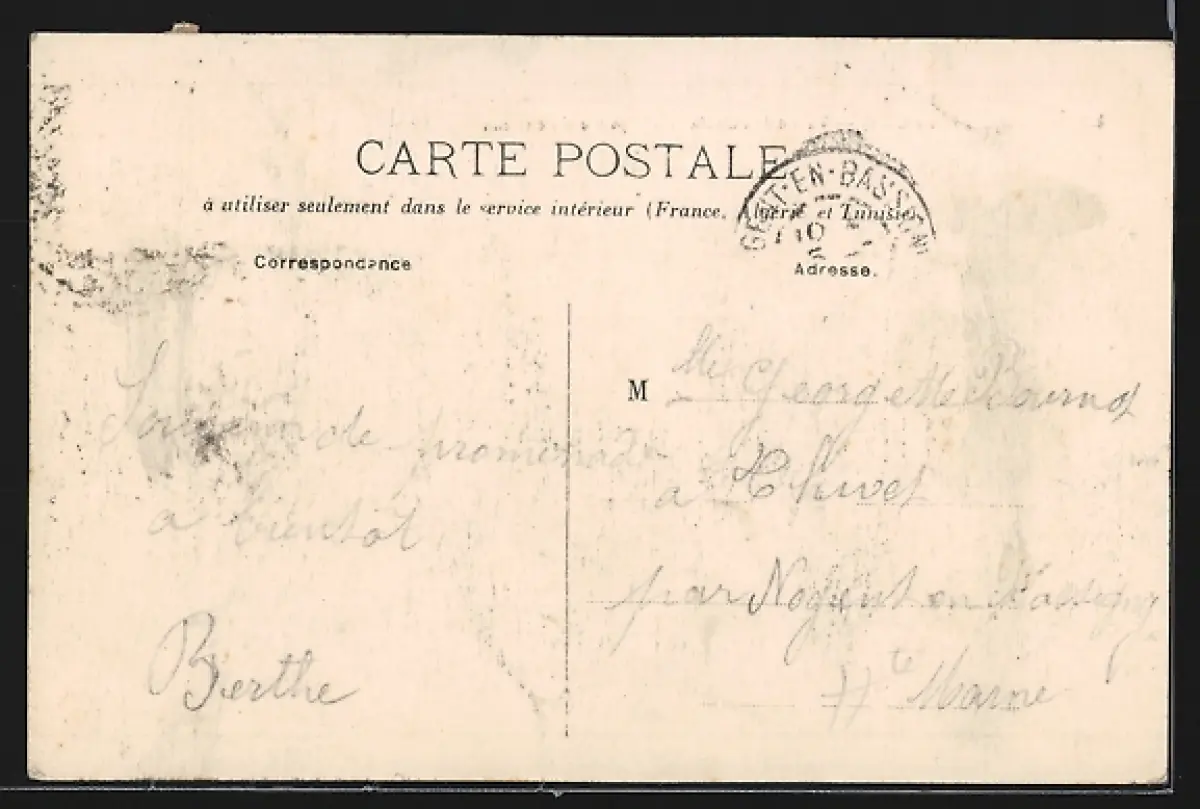 CARTE POSTALE
à utiliser seulement dans le service intérieur (France, Algérie et Tunisie)
Correspondance
Adresse.
Souvenir de promenade
à bientôt
Berthe
M Mlle Georgette
à
par Nogent en Bassigny
Hte Marne